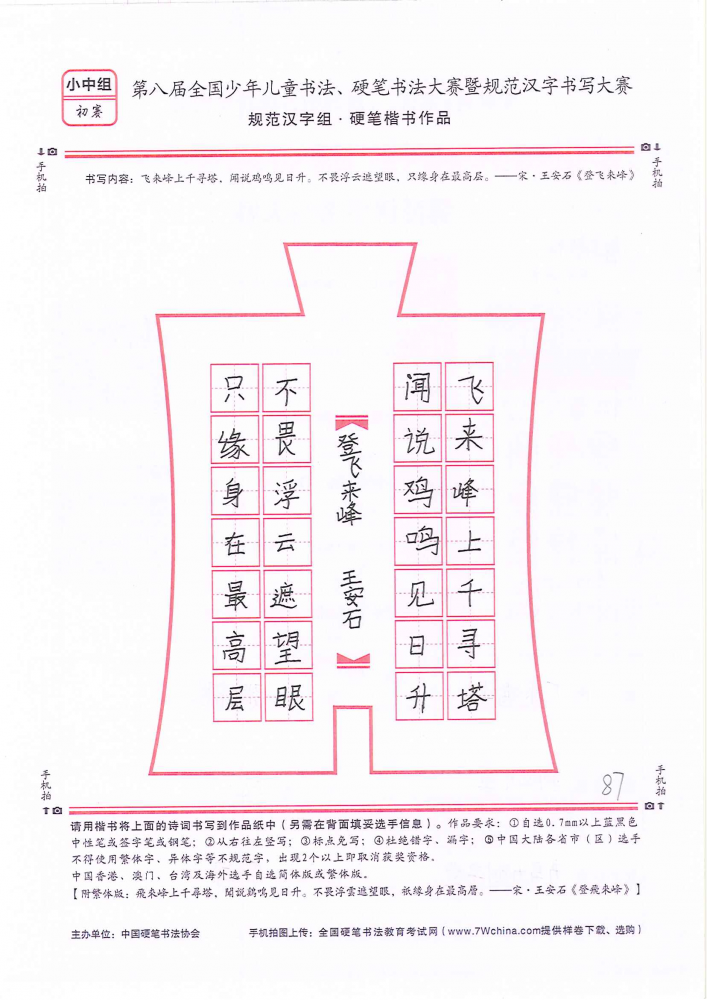 小中组
初赛
第八届全国少年儿童书法、硬笔书法大赛暨规范汉字书写大赛
规范汉字组·硬笔楷书作品
手机拍
手机拍
书写内容：飞来峰上千寻塔，闻说鸡鸣见日升。不畏浮云遮望眼，只缘身在最高层。——宋·王安石《登飞来峰》
飞来峰上千寻塔
闻说鸡鸣见日升
登飞来峰 王安石
不畏浮云遮望眼
只缘身在最高层
87
手机拍
手机拍
请用楷书将上面的诗词书写到作品纸中（另需在背面填妥选手信息）。作品要求：①自选0.7mm以上蓝黑色
中性笔或签字笔或钢笔；②从右往左竖写；③标点免写；④杜绝错字、漏字；⑤中国大陆各省市（区）选手
不得使用繁体字、异体字等不规范字，出现2个以上即取消获奖资格。
中国香港、澳门、台湾及海外选手自选简体版或繁体版。
【附繁体版：飛來峰上千尋塔，聞說鷄鳴見日升。不畏浮雲遮望眼，祇緣身在最高層。——宋·王安石《登飛來峰》】
主办单位：中国硬笔书法协会
手机拍图上传：全国硬笔书法教育考试网（www.7Wchina.com提供样卷下载、选购）